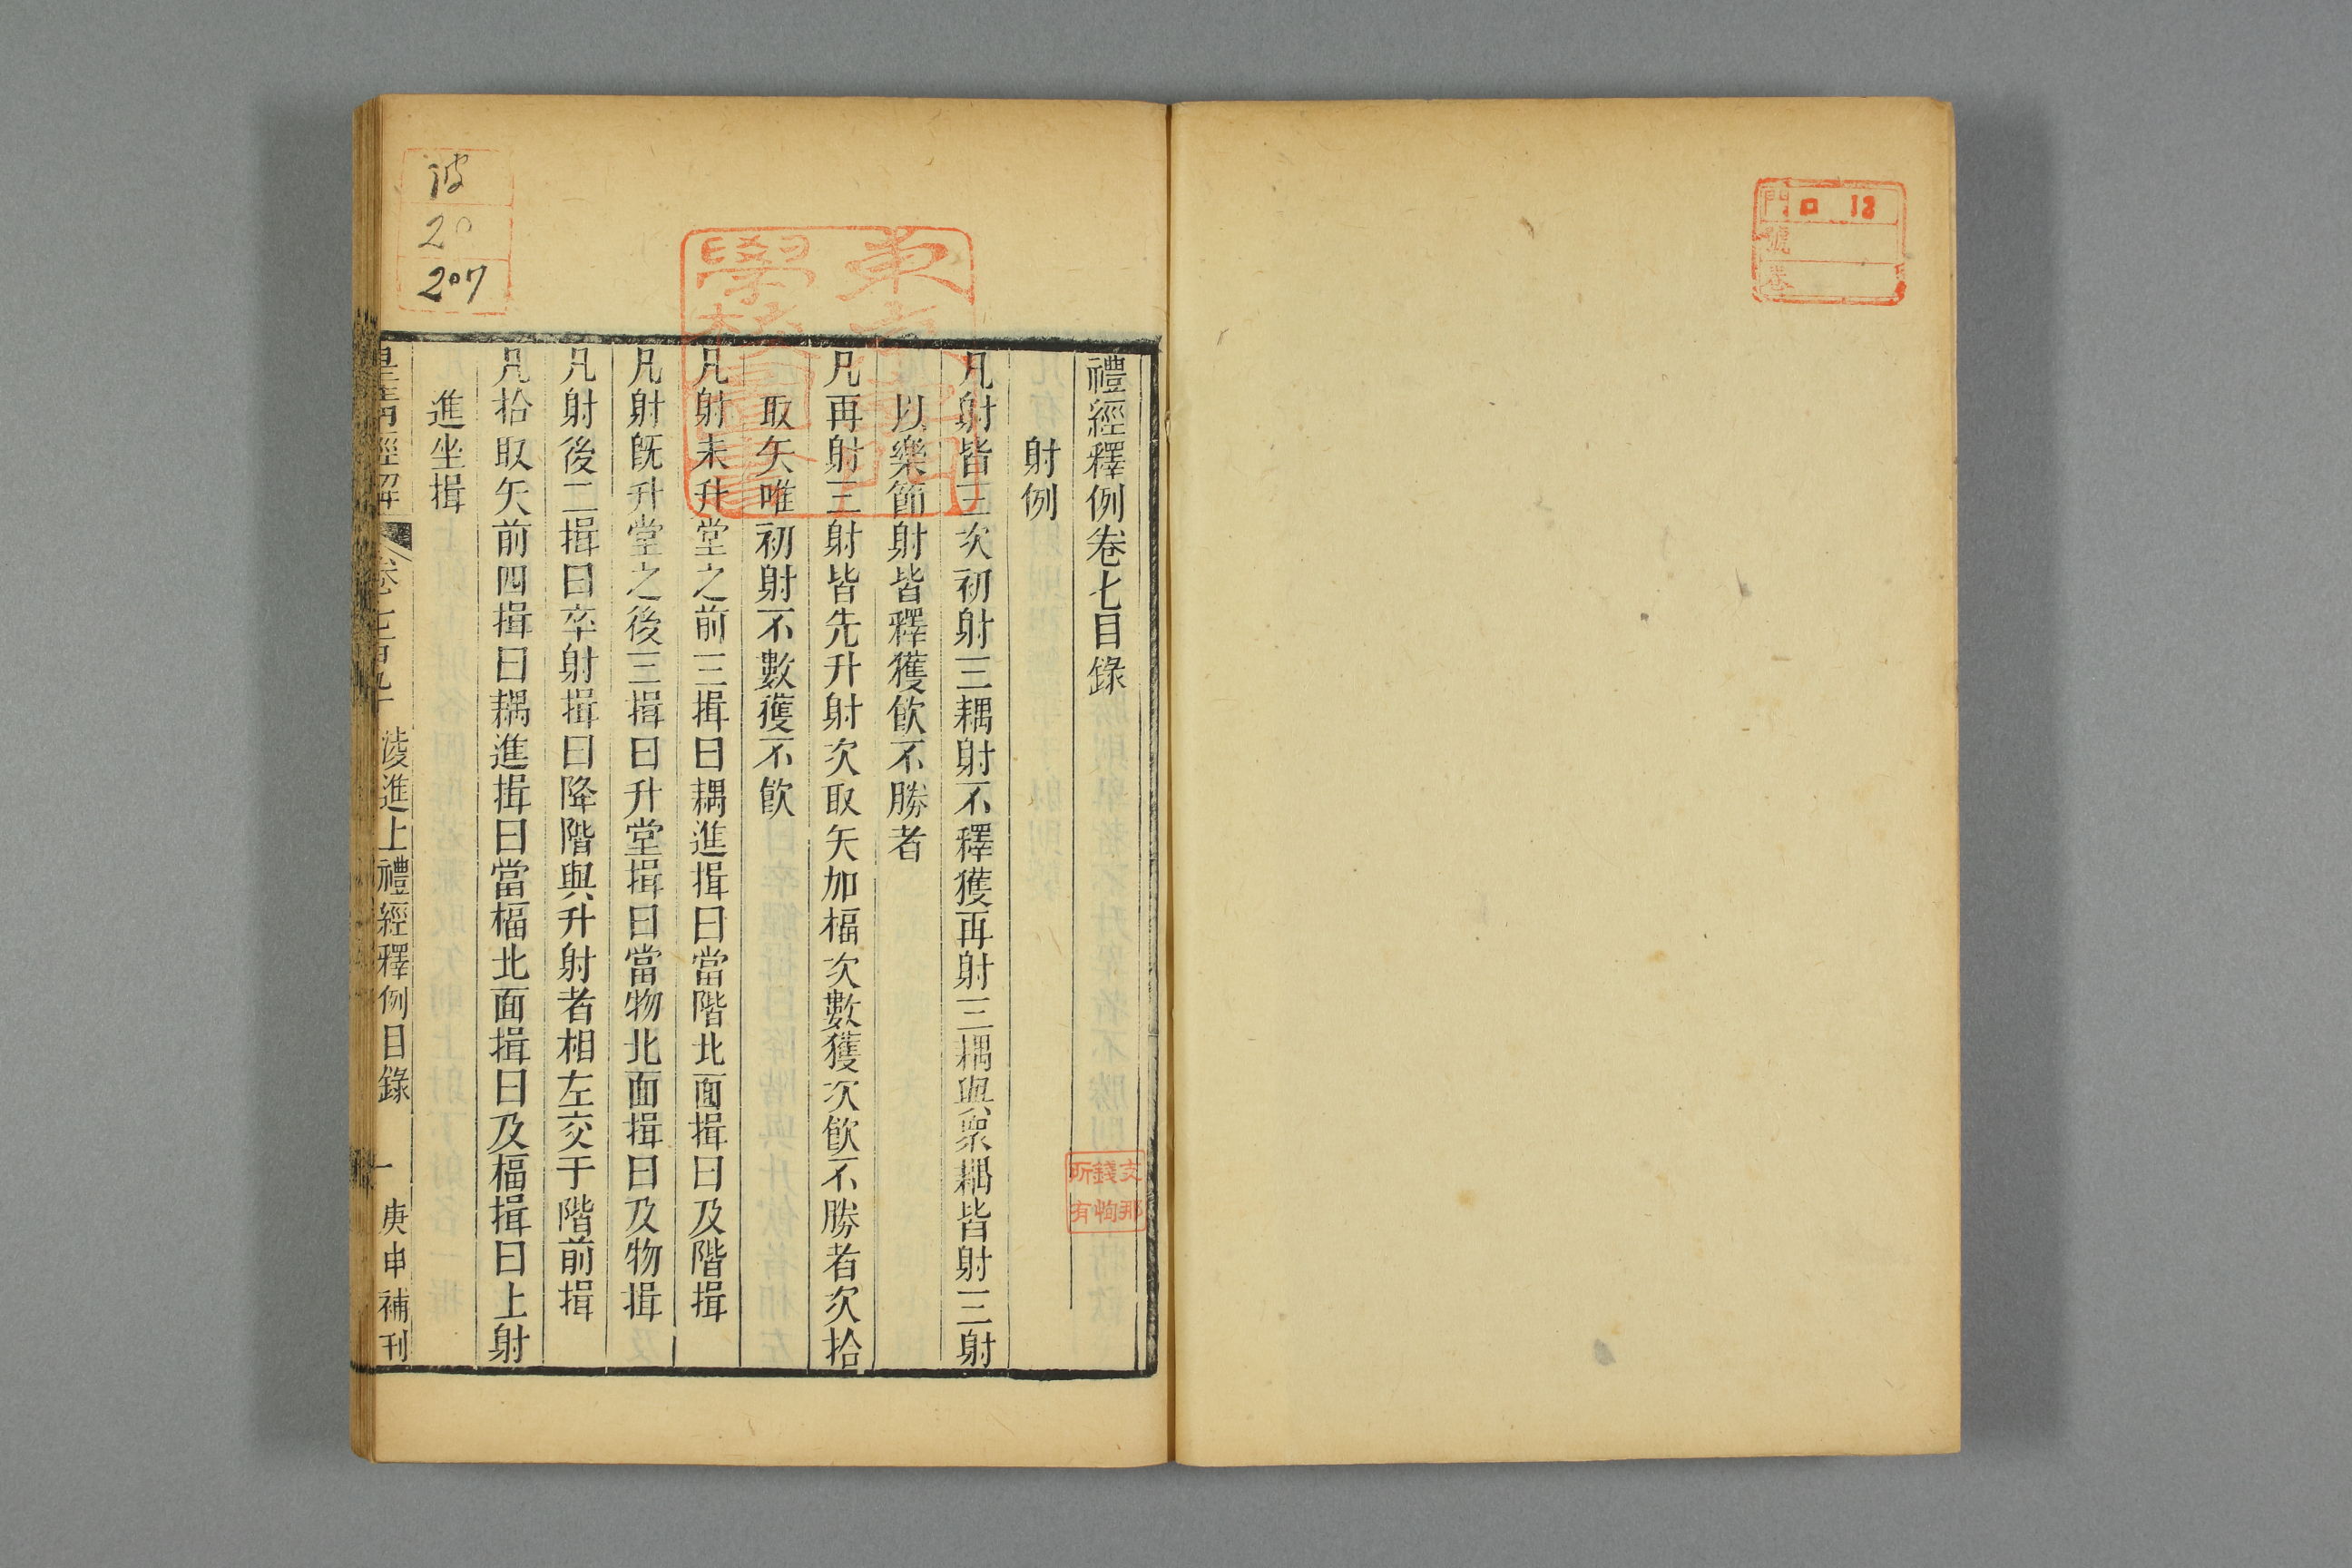 門 口 18
號
卷
禮經釋例卷七目錄
射例
凡射皆三次初射三耦射不釋獲再射三耦與衆耦皆射三射
以樂節射皆釋獲飲不勝者
凡再射三射皆先升射次取矢加楅次數獲次飲不勝者次拾
取矢唯初射不數獲不飲
凡射未升堂之前三揖曰耦進揖曰當階北面揖曰及階揖
凡射旣升堂之後三揖曰升堂揖曰當物北面揖曰及物揖
凡射後二揖曰卒射揖曰降階與升射者相左交于階前揖
凡拾取矢前四揖曰耦進揖曰當楅北面揖曰及楅揖曰上射
進坐揖
皇淸經解 卷七百九十 凌進上禮經釋例目錄 一 庚申補刊
支那
錢恂
所有
波
20
207